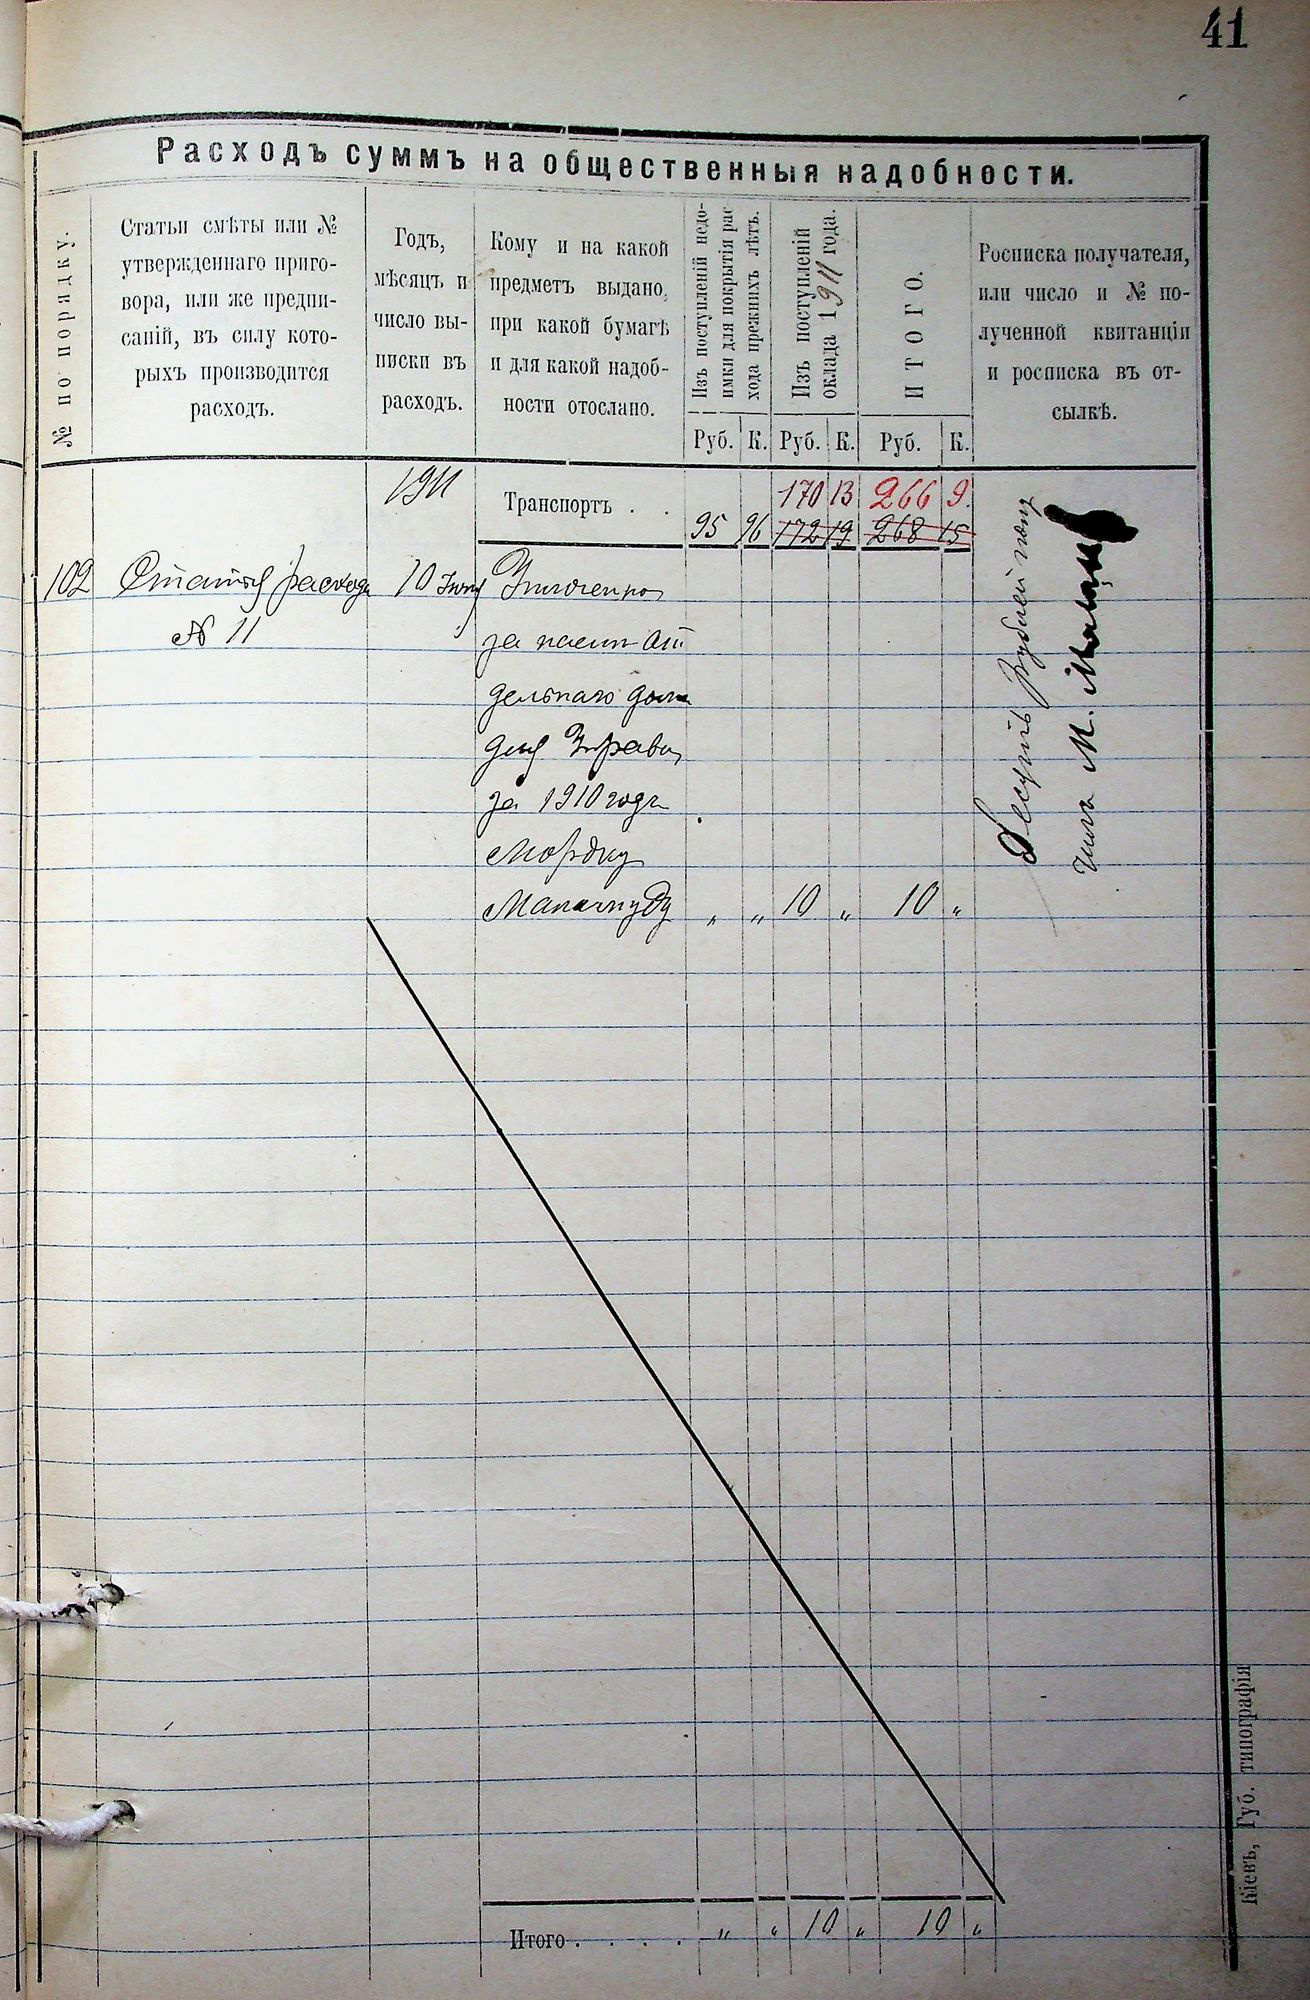 41
Расходъ суммъ на общественныя надобности.
№ по порядку.
Статьи смѣты или №
утвержденнаго приго-
вора, или же предпи-
саній, въ силу кото-
рыхъ производится
расходъ.
Годъ,
мѣсяцъ и
число вы-
писки въ
расходъ.
Кому и на какой
предметъ выдано,
при какой бумагѣ
и для какой надоб-
ности отослано.
Изъ поступленій недо-
имки для покрытія рас
хода прежнихъ лѣтъ.
Изъ поступленій
оклада 1911 года.
ИТОГО.
Росписка получателя,
или число и № по-
лученной квитанціи
и росписка въ от-
сылкѣ.
Руб. К. Руб. К. Руб. К.
1911 Транспортъ . . 170 13 266 9.
95 96 172 19 268 15
102 Статья расхода 10 Уплочено
№ 11 за наем от
дельнаго дома
для
за 1910 годъ
Мордку
„ „ 10 „ 10 „
Десять рублей полу
чилъ М.
Итого . . . . „ „ 10 „ 10 „
Кіевъ, Губ. типографія